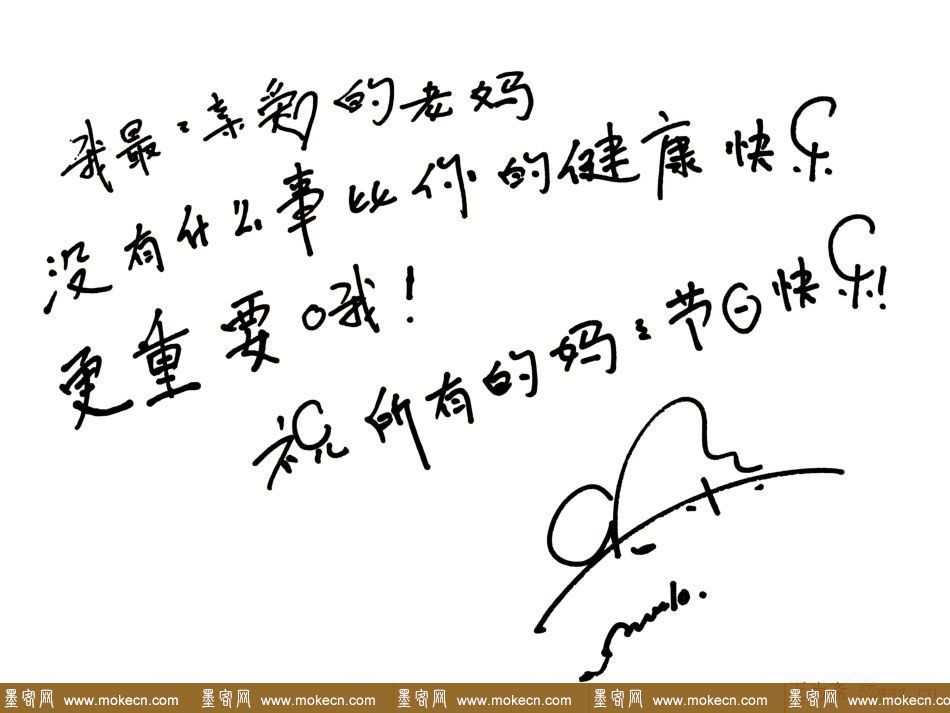 我最:亲爱的老妈
没有什么事比你的健康快乐
更重要哦!
祝所有的妈:节日快乐!
墨客网 www.mokecn.com 墨客网 www.mokecn.com 墨客网 www.mokecn.com 墨客网 www.mokecn.com 墨客网 www.mokecn.com